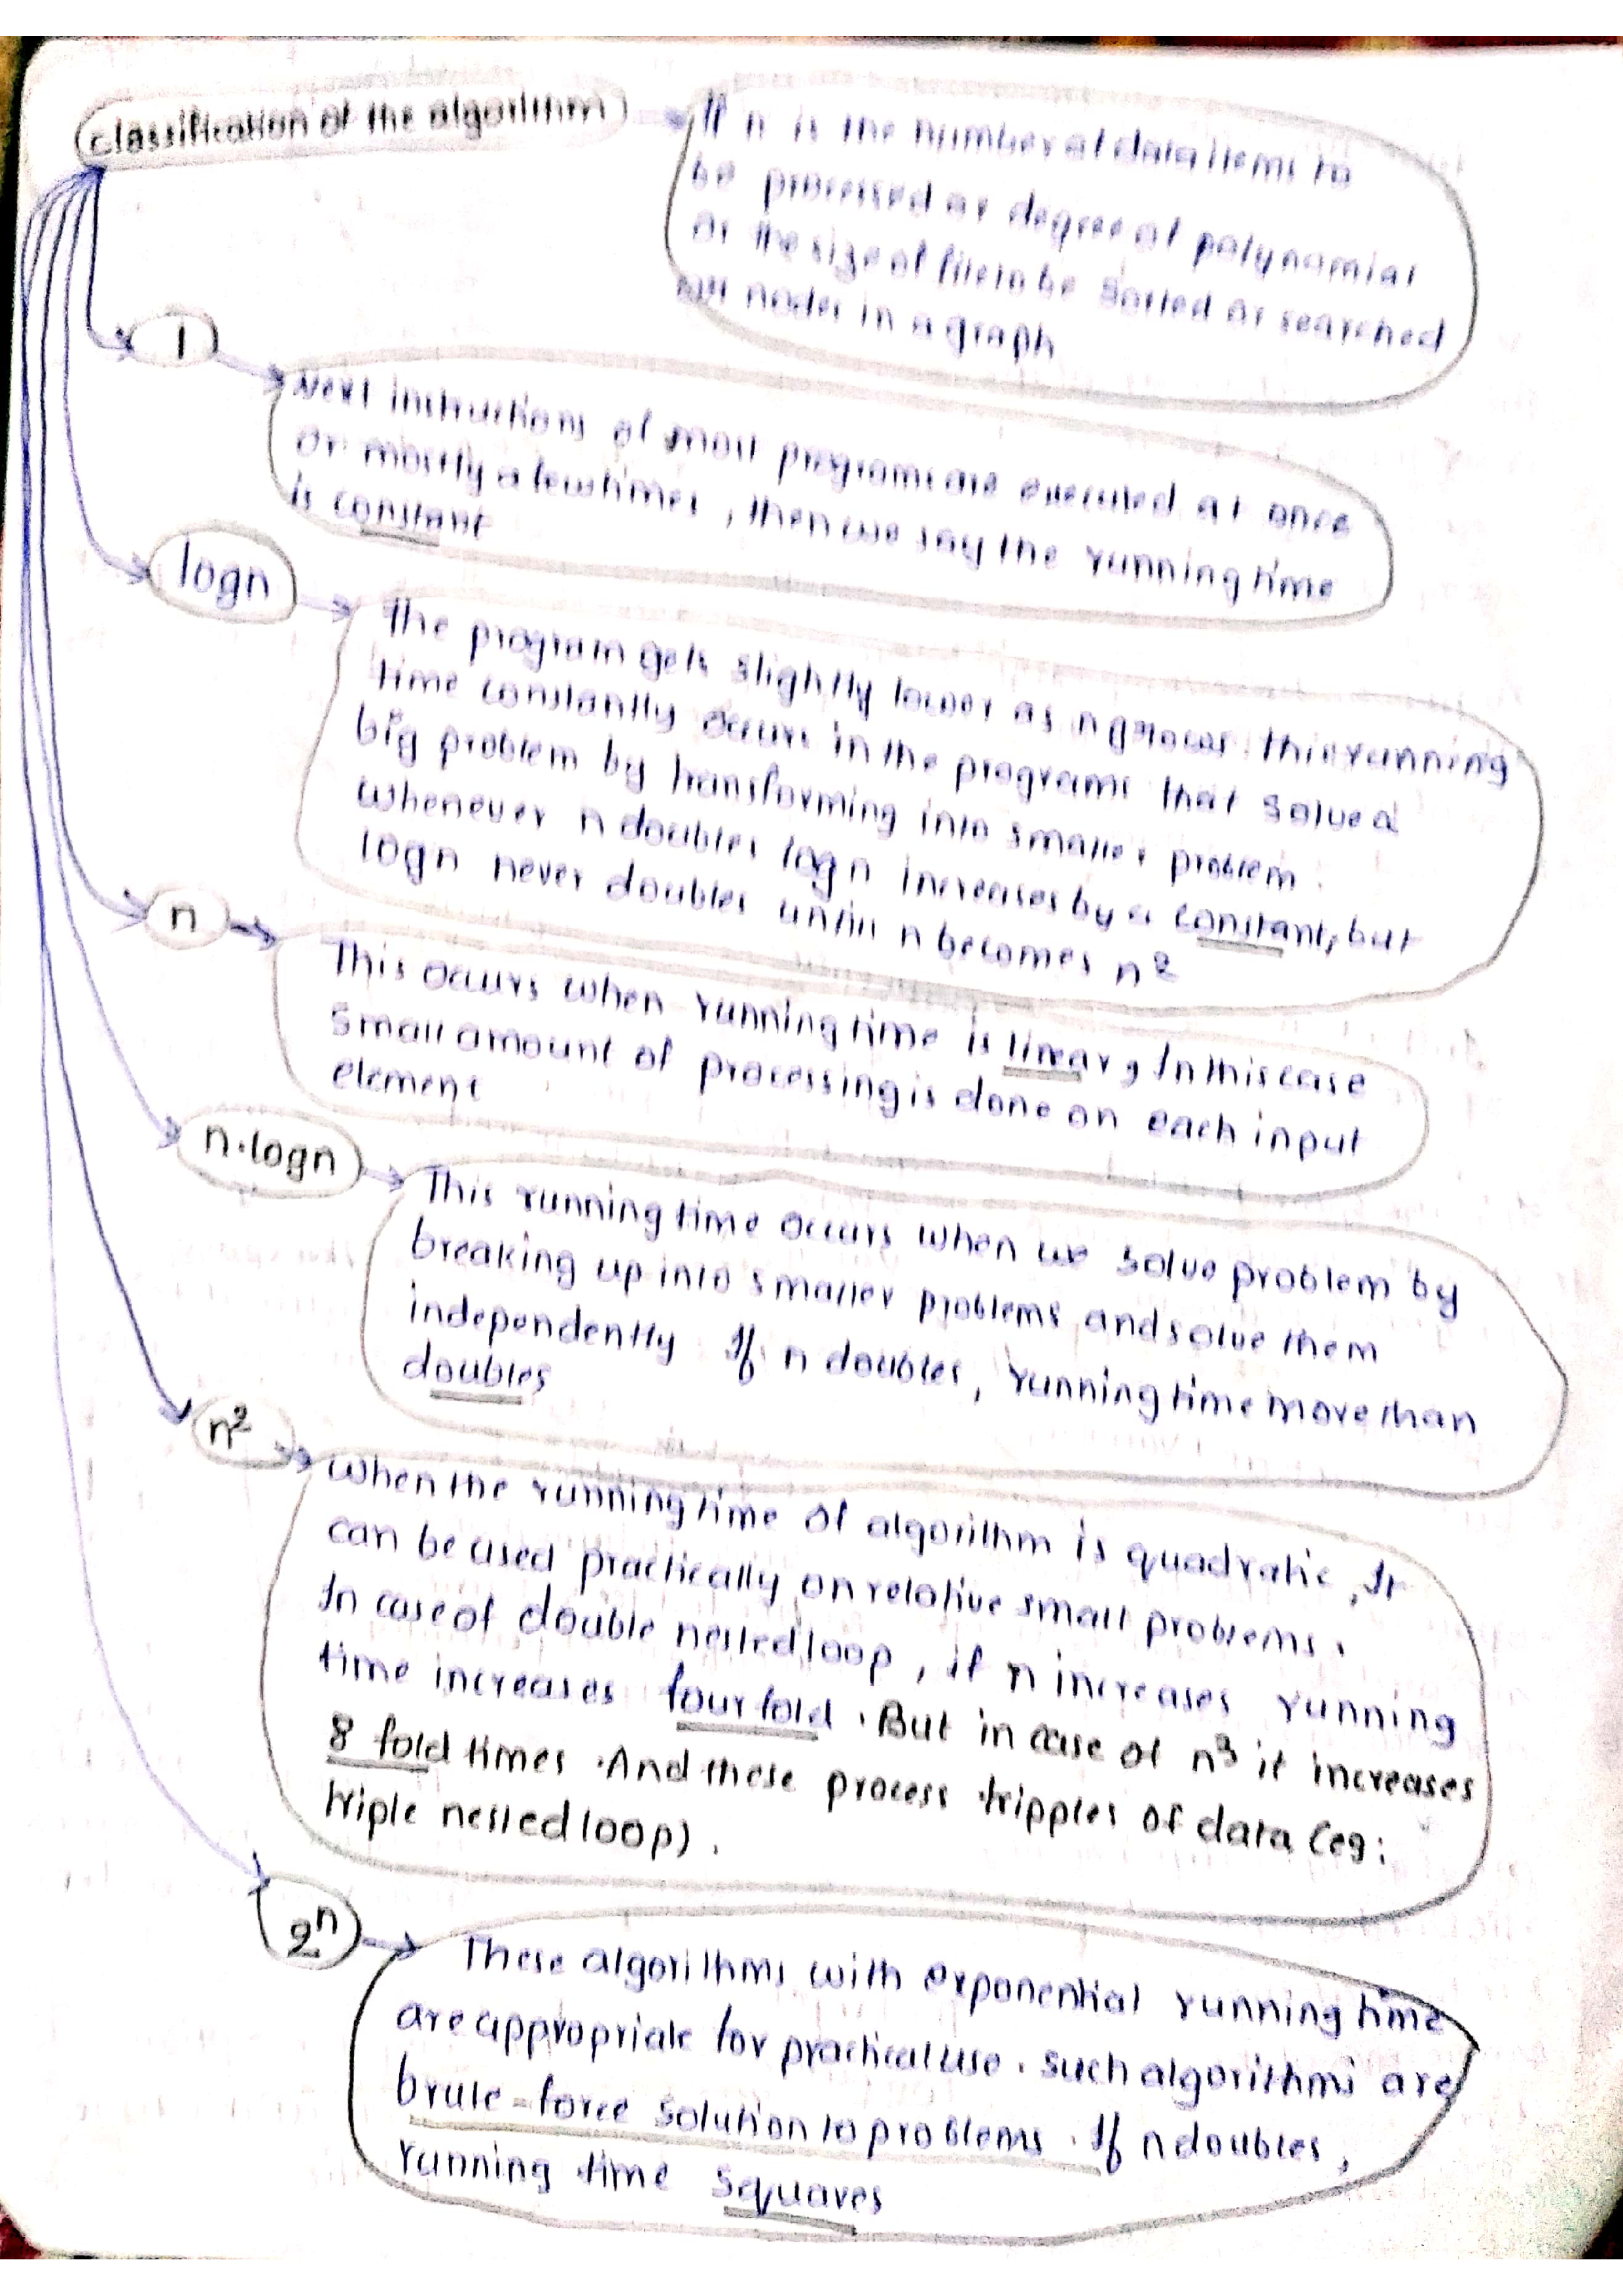 classification of the algorithm
If n is the number of data items to
be processed or degree of polynomial
or the size of file to be sorted or searched
nodes in a graph
1
Next instructions of most programs are executed at once
or mostly a few times, then we say the running time
is constant
logn
The program gets slightly lower as n grows. this running
time constantly occurs in the programs that solve a
big problem by transforming into smaller problem.
Whenever n doubles log n increases by a constant, but
logn never doubles until n becomes n²
n
This occurs when running time is linear, In this case
small amount of processing is done on each input
element
n·logn
This running time occurs when we solve problem by
breaking up into smaller problems and solve them
independently If n doubles, running time more than
doubles
n²
When the running time of algorithm is quadratic, It
can be used practically on relative small problems.
In case of double nested loop, if n increases running
time increases four fold. But in case of n³ it increases
8 fold times. And these process tripples of data (eg:
triple nested loop).
2ⁿ
These algorithms with exponential running time
are appropriate for practical use. such algorithms are
brute-force solution to problems. If n doubles,
running time squares